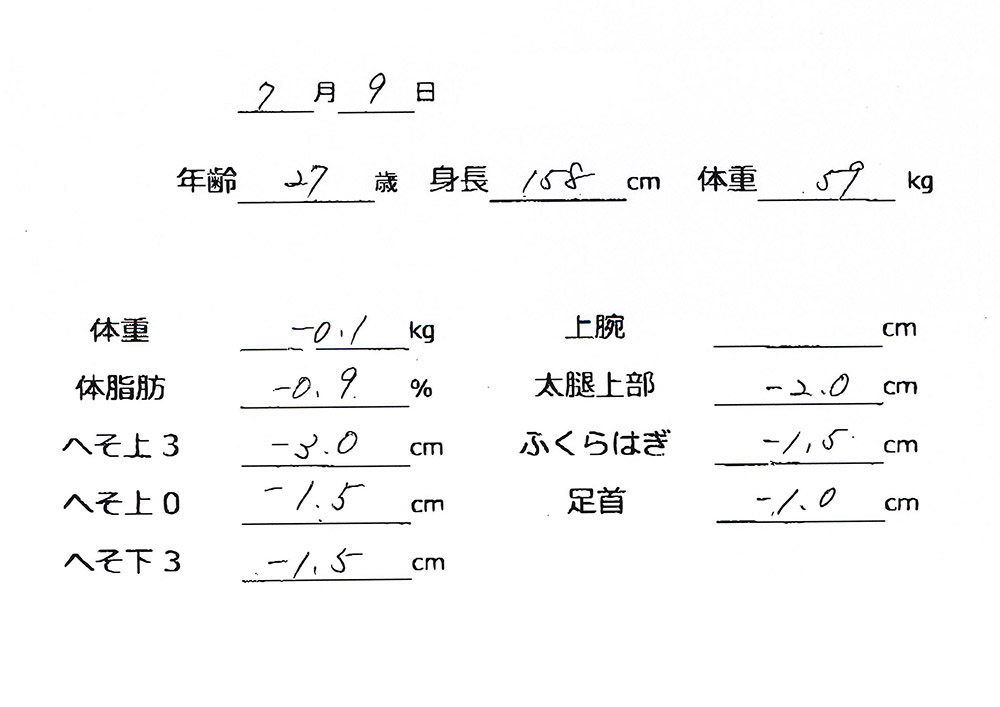 7月9日
年齢 27 歳 身長 158 cm 体重 59 kg
体重 -0.1 kg 上腕 cm
体脂肪 -0.9 % 太腿上部 -2.0 cm
へそ上3 -3.0 cm ふくらはぎ -1.5 cm
へそ上0 -1.5 cm 足首 -1.0 cm
へそ下3 -1.5 cm